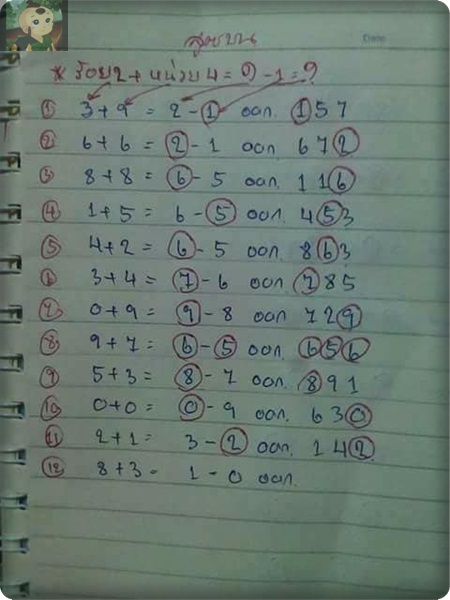 สูตรบน
Date
* ร้อย2 + หน่วย4 = ๑ - 1 = ?
① 3 + 9 = 2 - 1 ออก. 157
② 6 + 6 = 2 - 1 ออก 672
③ 8 + 8 = 6 - 5 ออก. 116
④ 1 + 5 = 6 - 5 ออก. 453
⑤ 4 + 2 = 6 - 5 ออก 863
⑥ 3 + 4 = 7 - 6 ออก 785
⑦ 0 + 9 = 9 - 8 ออก 729
⑧ 9 + 7 = 6 - 5 ออก. 656
⑨ 5 + 3 = 8 - 7 ออก. 891
⑩ 0 + 0 = 0 - 9 ออก. 630
⑪ 2 + 1 = 3 - 2 ออก. 142
⑫ 8 + 3 - 1 - 0 ออก.